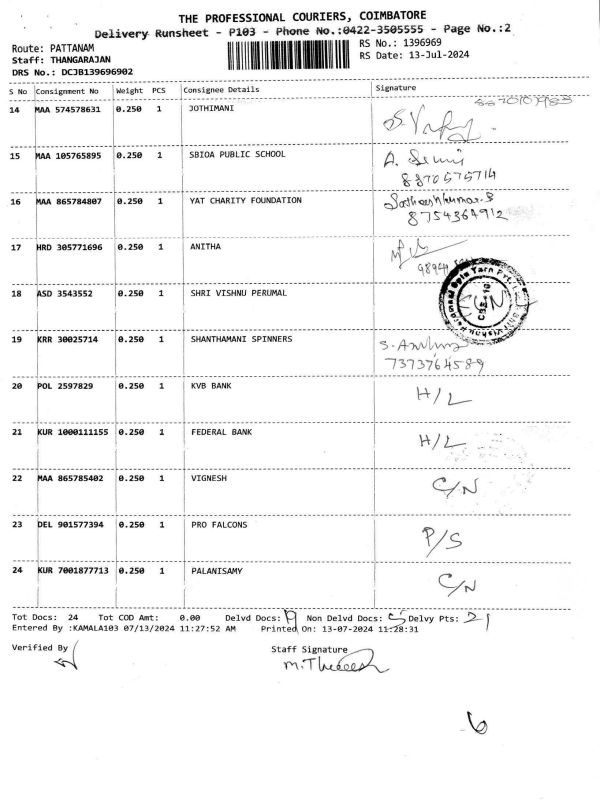 THE PROFESSIONAL COURIERS, COIMBATORE
Delivery Runsheet - P103 - Phone No.:0422-3505555 - Page No.:2
Route: PATTANAM
RS No.: 1396969
Staff: THANGARAJAN
RS Date: 13-Jul-2024
DRS No.: DCJB139696902
S No Consignment No Weight PCS Consignee Details Signature
14 MAA 574578631 0.250 1 JOTHIMANI
15 MAA 105765895 0.250 1 SBIOA PUBLIC SCHOOL A.
8870575714
16 MAA 865784807 0.250 1 YAT CHARITY FOUNDATION Satheeshkumar.S
8754364912
17 HRD 305771696 0.250 1 ANITHA
18 ASD 3543552 0.250 1 SHRI VISHNU PERUMAL
19 KRR 30025714 0.250 1 SHANTHAMANI SPINNERS S.
7373764589
20 POL 2597829 0.250 1 KVB BANK H/L
21 KUR 1000111155 0.250 1 FEDERAL BANK H/L
22 MAA 865785402 0.250 1 VIGNESH C/N
23 DEL 901577394 0.250 1 PRO FALCONS P/S
24 KUR 7001877713 0.250 1 PALANISAMY C/N
Tot Docs: 24 Tot COD Amt: 0.00 Delvd Docs: Non Delvd Docs: 5 Delvy Pts: 21
Entered By :KAMALA103 07/13/2024 11:27:52 AM Printed On: 13-07-2024 11:28:31
Verified By
Staff Signature
6